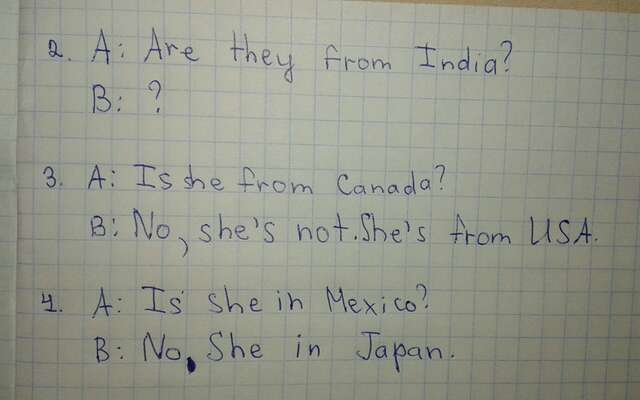 2. A: Are they from India?
B: ?
3. A: Is she from Canada?
B: No, she's not. She's from USA.
4. A: Is she in Mexico?
B: No. She in Japan.